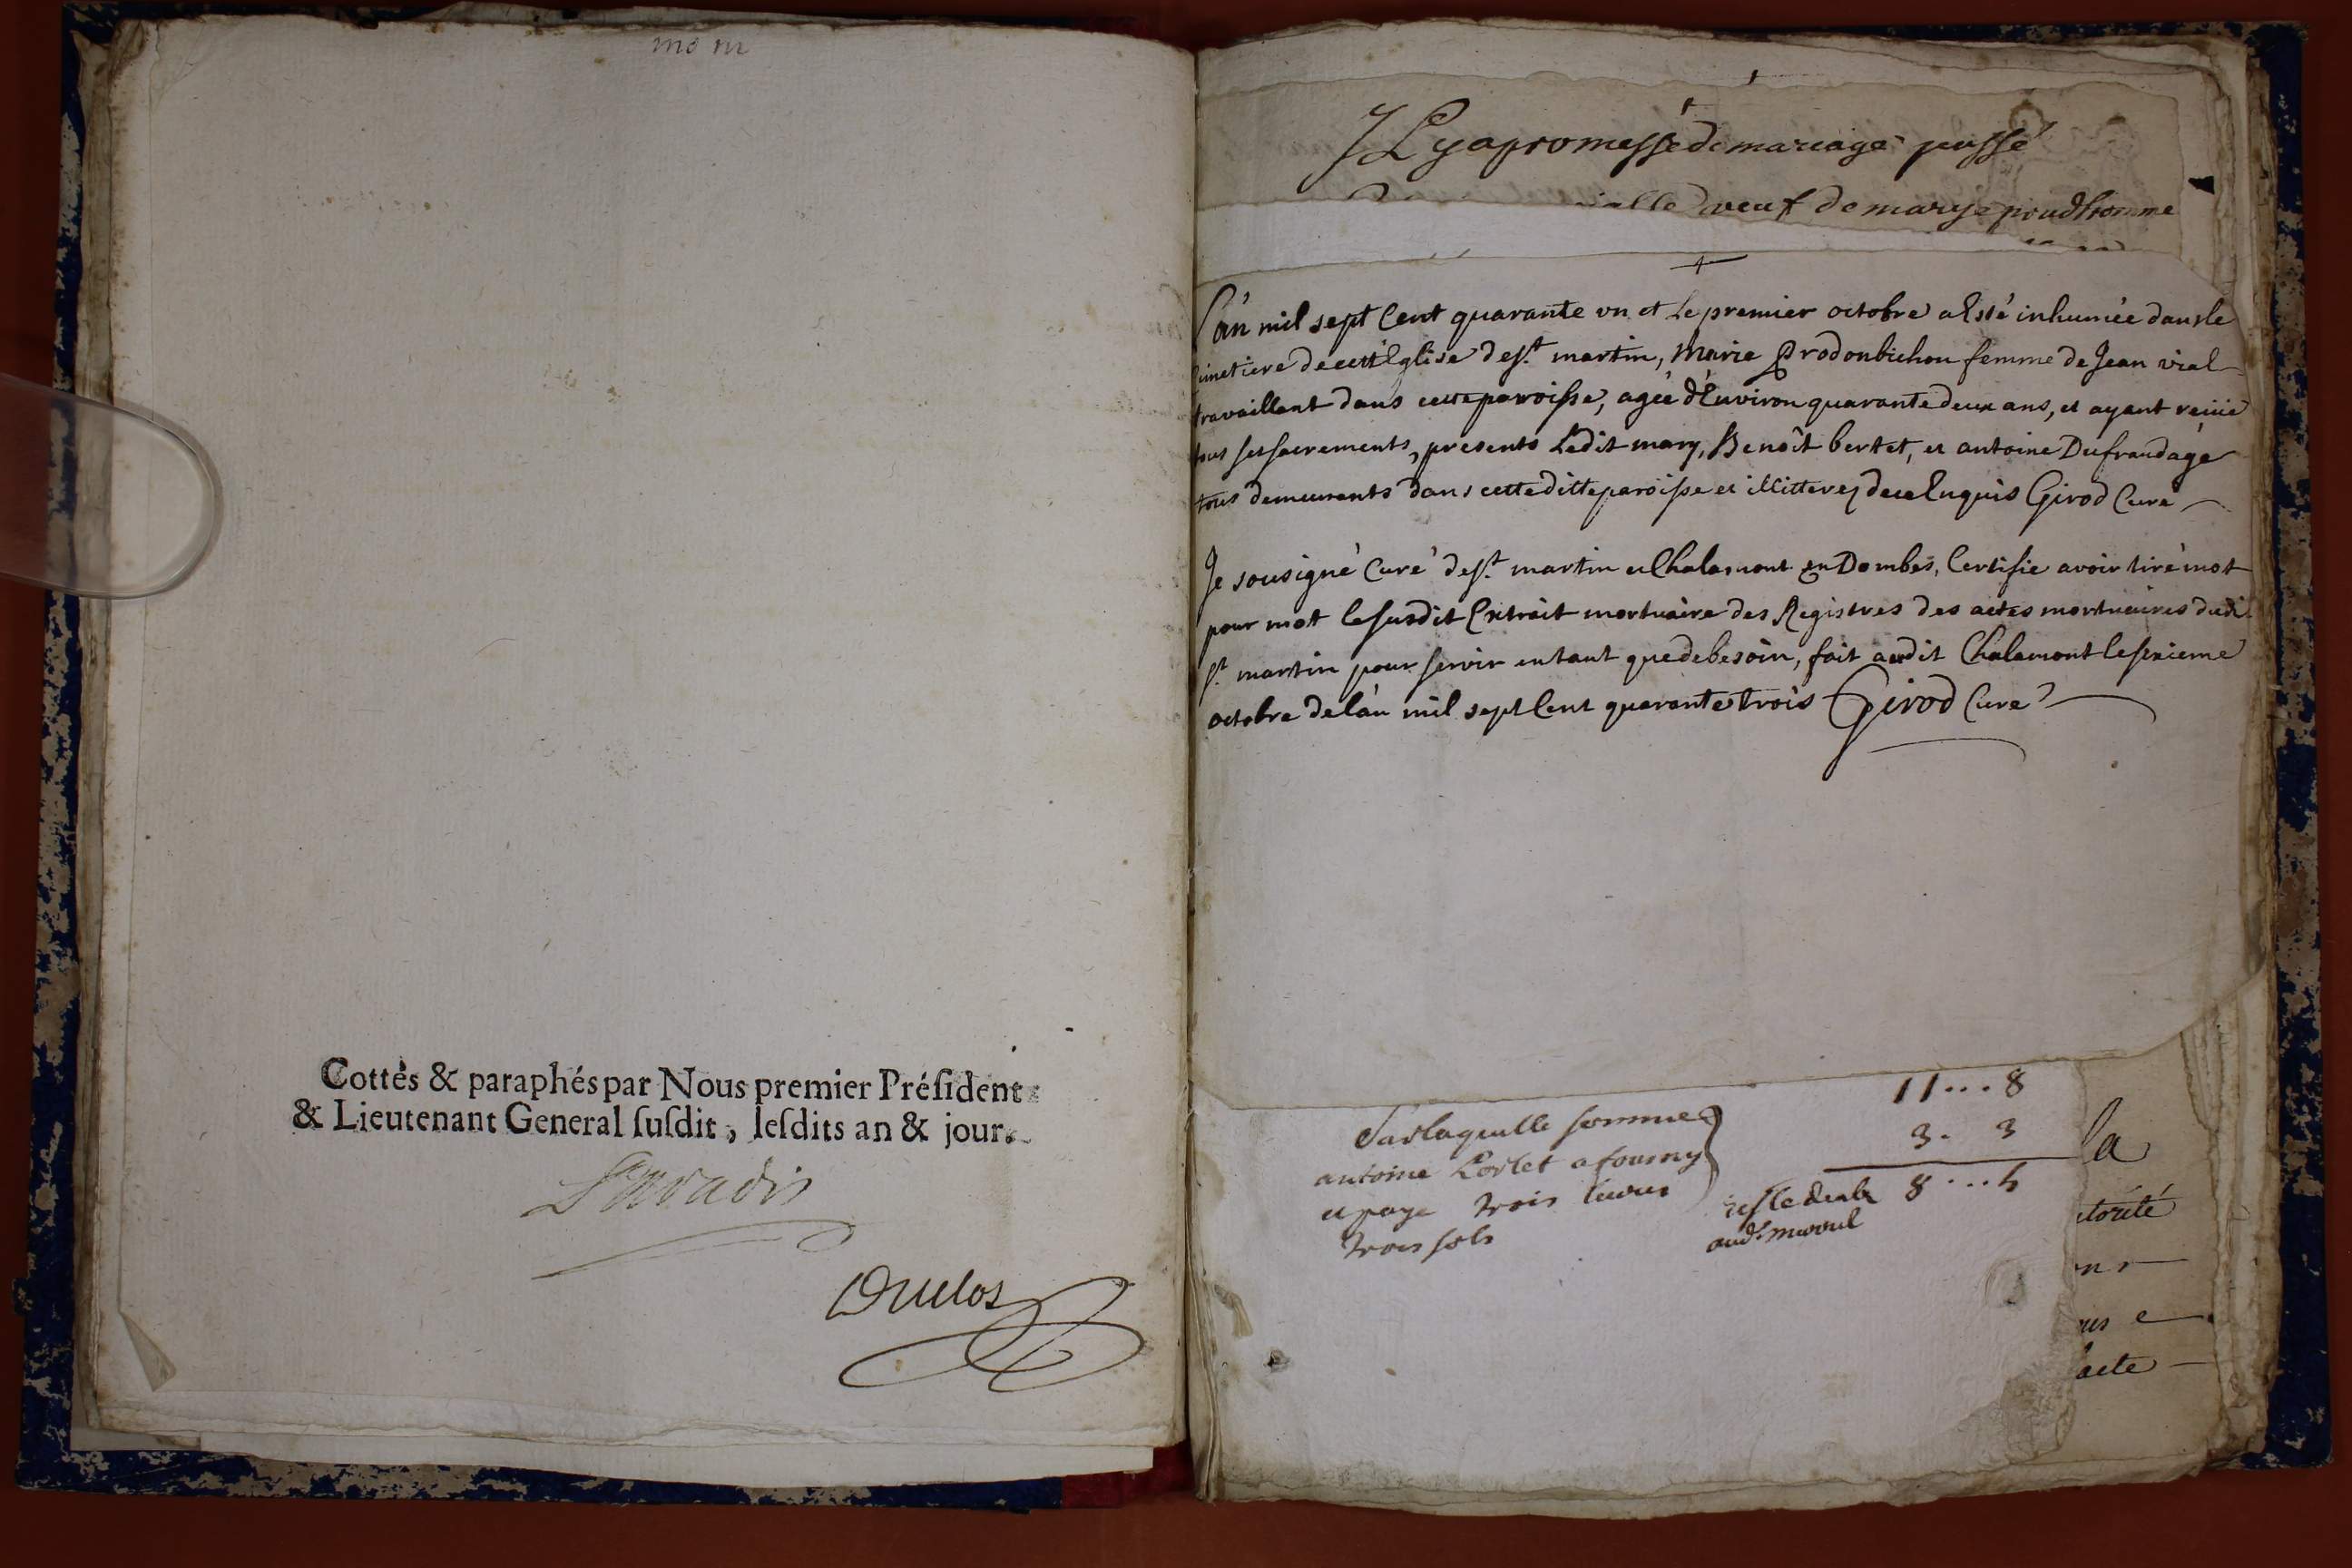 mo m
Cottés & paraphés par Nous premier Préſident
& Lieutenant General ſuſdit, leſdits an & jour.
Duclos
JL y a promesse de mariage passé
veuf de marye proudhomme
L'an mil sept Cent quarante vn et Le premier octobre a Esté inhumée dans le
Cimetiere de cette Eglise de St martin, Marie Prodonbichon femme de Jean vial
travaillant dans cette paroisse, agée d'Environ quarante deux ans, et ayant recüe
tous ses sacrements, presents Ledit mary, Benoît bertet, et antoine Dufraudage
tous demeurants dans cette ditte paroisse et illitterez de ce Enquis Girod Curé
Je sousigné Curé de St martin et Chalamont en Dombes, Certifie avoir tiré mot
pour mot le susdit Extrait mortuaire des Registres des actes mortuaires dudit
St martin pour servir en tant que de besoin, fait audit Chalamont le sixieme
octobre de l'an mil sept Cent quarante trois Girod Curé
11...8
3. 3
Sur laquelle somme
antoine a fourny
et paye trois livres
trois sols
reste deub 8...5
aud.
la
torité
ur
us e
acte